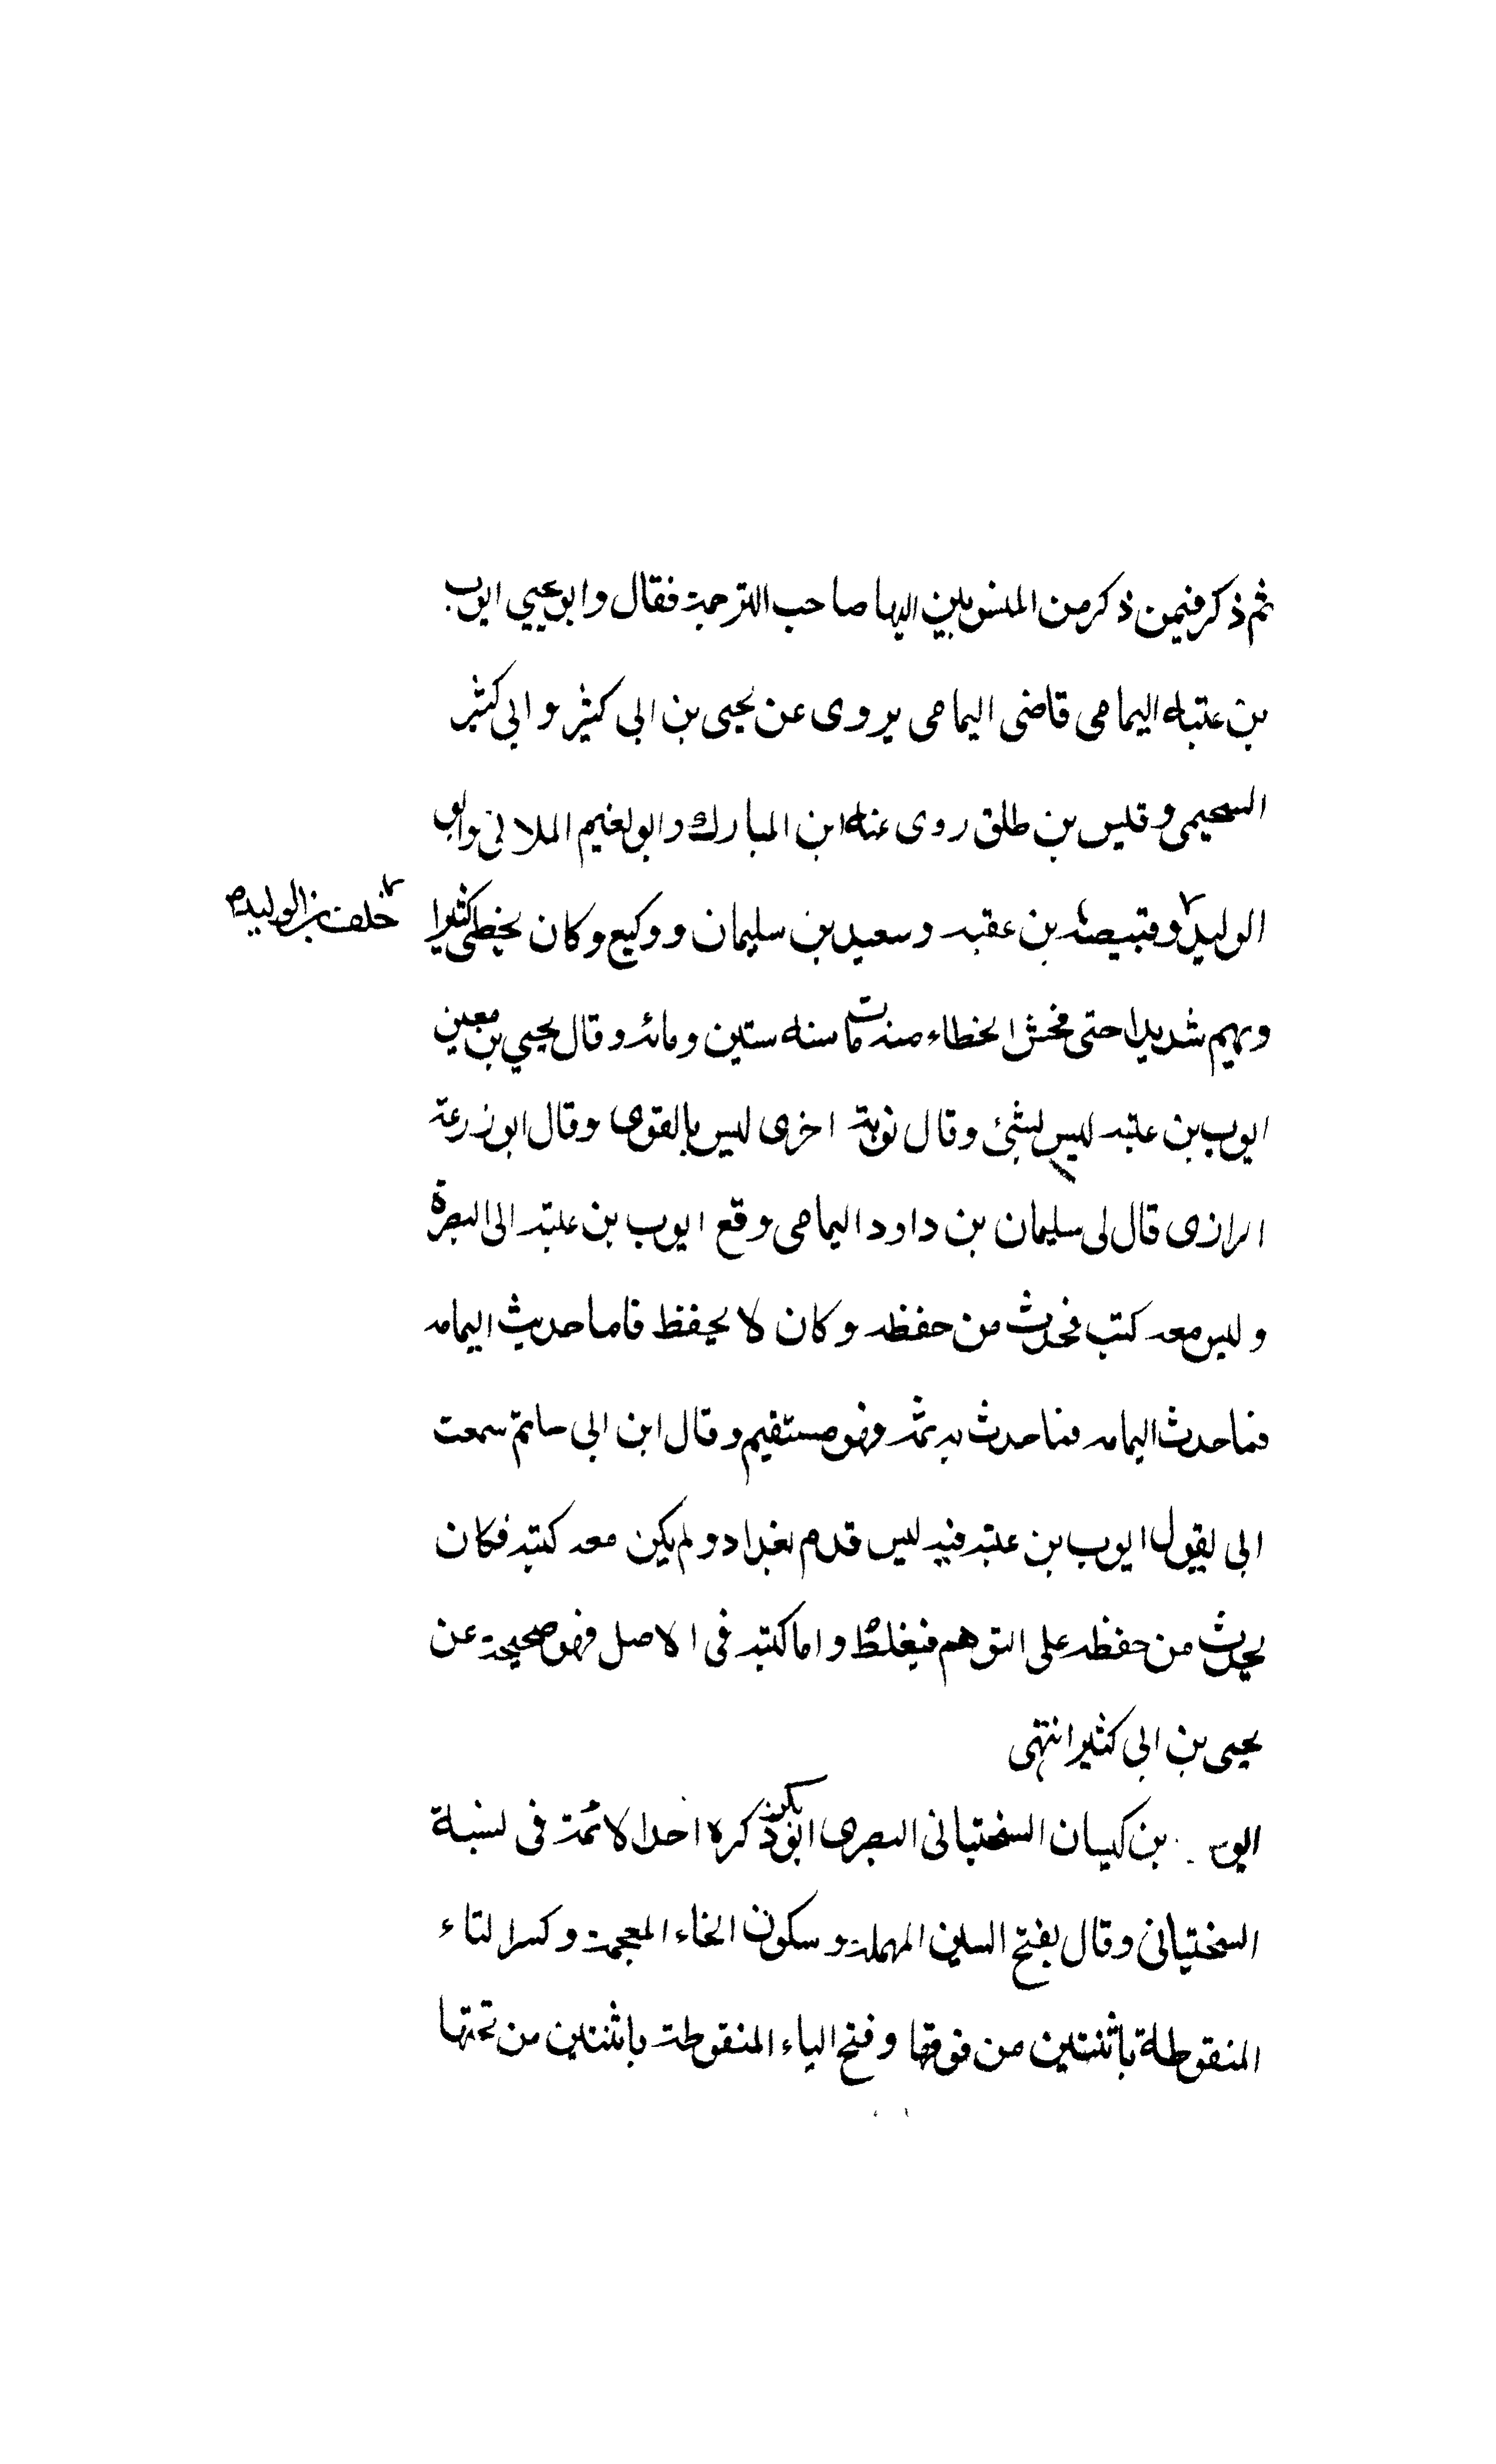 ثم ذكر فيمن ذكر من المنسوبين اليها صاحب الترجمة فقال وابو يحيي ايوب
بن عتبه اليمامى قاضى اليمامى يروى عن يحيى بن ابى كثير و ابى كثير
السحيمى وقيس بن طلق روى عنه ابن المبارك وابو لغيم الملائى وابو
الوليد وقبيصة بن عقبه وسعيد بن سليمان ووكيع وكان يخطى كثيرا
خلف بن الوليد ص
ويهم شديدا حتى فحش الخطاء منه مات سنه ستين ومائه وقال يحيي بن معين
ايوب بن عتبه ليس لبشئ وقال نوبة اخرى ليس بالقوى وقال ابو زرعة
الرازى قال لى سليمان بن داود اليمامى وقع ايوب بن عتبه الى البصرة
وليس معه كتب فحدث من حفظه وكان لا يحفظ فاما حديث اليمامه
فما حدث اليمامه فما حدث به ثمه فهو مستقيم وقال ابن ابى حاتم سمعت
ابى يقول ايوب بن عتبه فيه ليس قدم بغداد ولم يكن معه كتبه فكان
يحدث من حفظه على التوهم فيغلط واما كتبه فى الاصل فهو صحيحة عن
يحيى بن ابى كثير انتهى
ايوب بن كيسان السختيانى البصرى ابو بكر ذكره احد الائمة فى لنسبة
السختيانى وقال بفتح السين المهملة وسكون الخاء المعجمة وكسر التاء
المنقوطة باثنتين من فوقها وفتح الياء المنقوطة باثنتين من تحتها